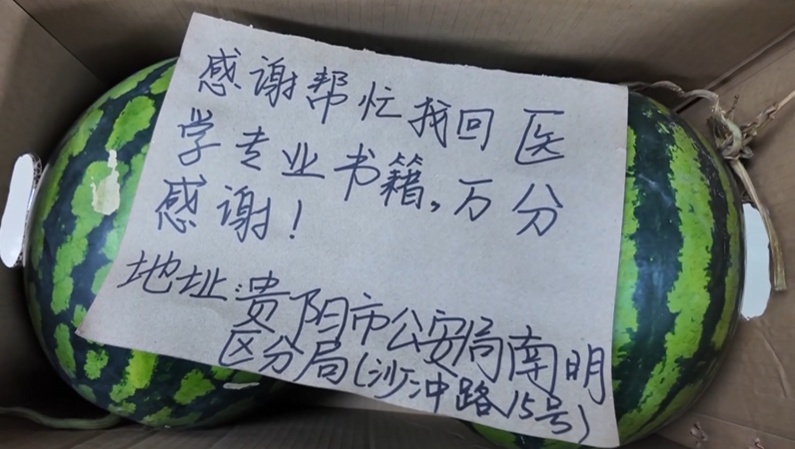 感谢帮忙找回医
学专业书籍,万分
感谢!
地址:贵阳市公安局南明
区分局(沙冲路15号)